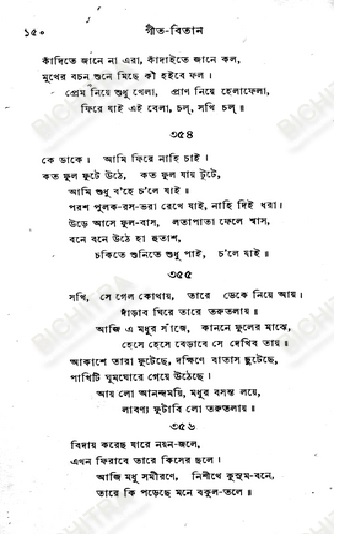 ১৫০ গীত-বিতান
কাঁদিতে জানে না এরা, কাঁদাইতে জানে কল,
মুখের বচন শুনে মিছে কী হইবে ফল।
প্রেম নিয়ে শুধু খেলা, প্রাণ নিয়ে হেলাফেলা,
ফিরে যাই এই বেলা, চল্, সখি চল্॥
৩৫৪
কে ডাকে। আমি ফিরে নাহি চাই।
কত ফুল ফুটে উঠে, কত ফুল যায় টুটে,
আমি শুধু ব'হে চ'লে যাই॥
পরশ পুলক-রস-ভরা রেখে যাই, নাহি দিই ধরা।
উড়ে আসে ফুল-বাস, লতাপাতা ফেলে শ্বাস,
বনে বনে উঠে হা হুতাশ,
চকিতে শুনিতে শুধু পাই, চ'লে যাই॥
৩৫৫
সখি, সে গেল কোথায়, তারে ডেকে নিয়ে আয়।
দাঁড়াব ঘিরে তারে তরুতলায়॥
আজি এ মধুর সাঁজে, কাননে ফুলের মাঝে,
হেসে হেসে বেড়াবে সে দেখিব তায়॥
আকাশে তারা ফুটেছে, দক্ষিণে বাতাস ছুটেছে,
পাখিটি ঘুমঘোরে গেয়ে উঠেছে।
আয় লো আনন্দময়ি, মধুর বসন্ত লয়ে,
লাবণ্য ফুটাবি লো তরুতলায়॥
৩৫৬
বিদায় করেছ যারে নয়ন-জলে,
এখন ফিরাবে তারে কিসের ছলে।
আজি মধু সমীরণে, নিশীথে কুসুম-বনে,
তারে কি পড়েছে মনে বকুল-তলে॥
BICHITRA